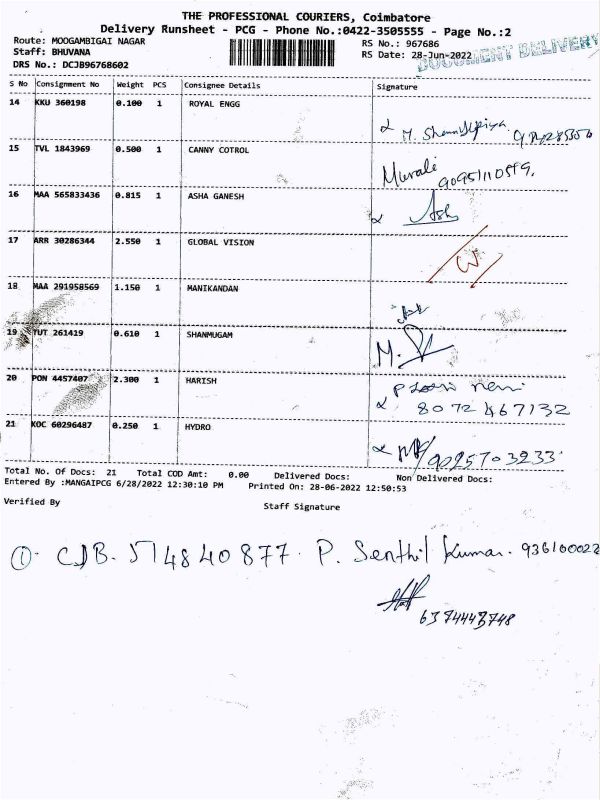 THE PROFESSIONAL COURIERS, Coimbatore
Delivery Runsheet - PCG - Phone No.:0422-3505555 - Page No.:2
Route: MOOGAMBIGAI NAGAR
RS No.: 967686
Staff: BHUVANA
RS Date: 28-Jun-2022
DOCUMENT DELIVERY
DRS No.: DCJB96768602
S No Consignment No Weight PCS Consignee Details Signature
14 KKU 360198 0.100 1 ROYAL ENGG
15 TVL 1843969 0.500 1 CANNY COTROL
Murali
9095110519.
16 MAA 565833436 0.815 1 ASHA GANESH
Ash
17 ARR 30286344 2.550 1 GLOBAL VISION
18 MAA 291958569 1.150 1 MANIKANDAN
19 TUT 261419 0.610 1 SHANMUGAM
20 PON 4457407 2.300 1 HARISH
8072467132
21 KOC 60296487 0.250 1 HYDRO
9025703233
Total No. Of Docs: 21 Total COD Amt: 0.00 Delivered Docs: Non Delivered Docs:
Entered By :MANGAIPCG 6/28/2022 12:30:10 PM Printed On: 28-06-2022 12:50:53
Verified By
Staff Signature
① CJB. 514840877. P. Senthil Kumar. 936100022
6374443748